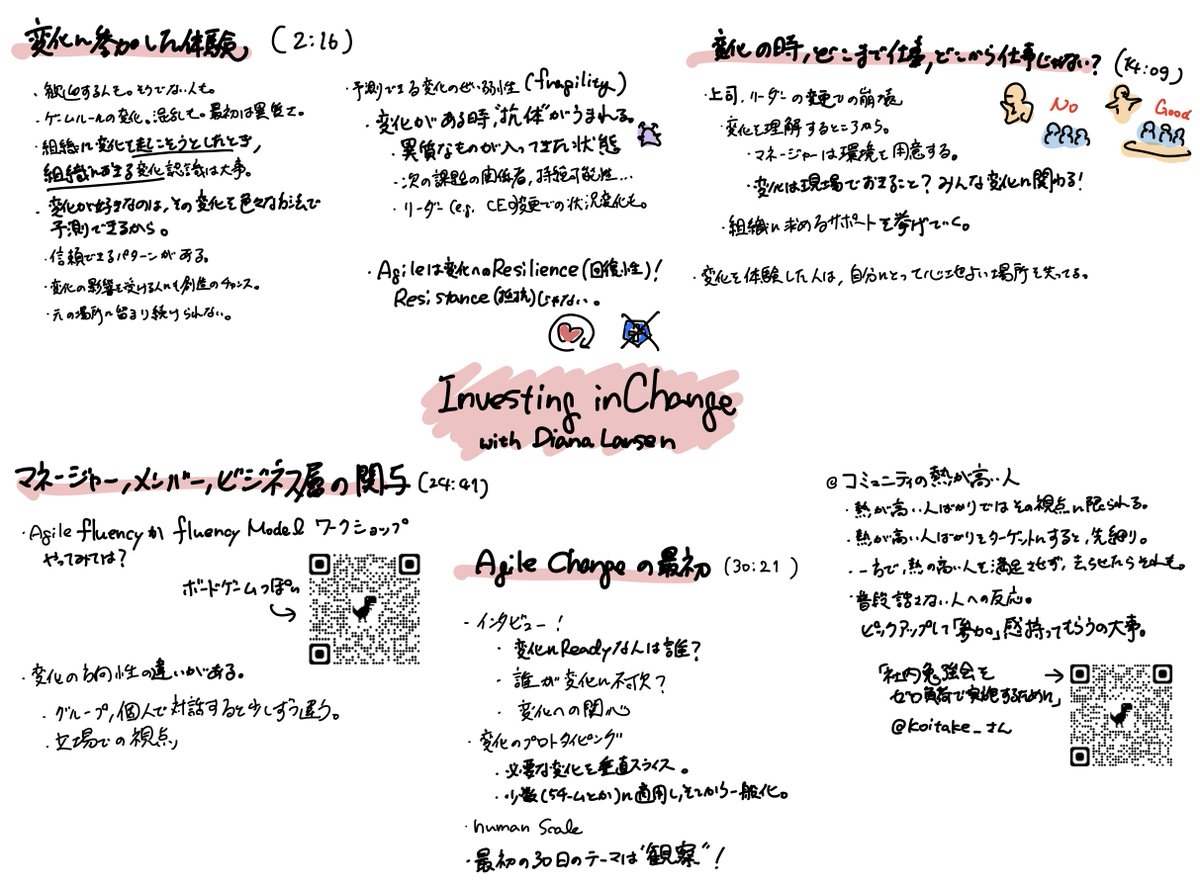 変化に参加した体験 (2:16)
・歓迎する人も。そうでない人も。
・ゲームルールの変化。混乱も。最初は異質で。
・組織に変化を起こそうとしたとき、
組織におきる変化認識は大事。
・変化が好きなのは、その変化を色々な方法で
予測できるから。
・信頼できるパターンがある。
・変化の影響を受ける人にも創造のチャンス。
・元の場所に留まり続けられない。
・予測できる変化のぜい弱性 (fragility)
・変化がある時、"抗体"がうまれる。
異質なものが入ってきた状態
・次の課題の関係者、持続可能性…
・リーダー (e.g. CEO)変更での状況変化も。
・Agileは変化へのResilience(回復性)!
Resistance(抵抗)じゃない。
変化の時、どこまで仕事、どこから仕事じゃない? (14:09)
・上司、リーダーの変更での崩壊
・変化を理解するところから。
・マネージャーは環境を用意する。
・変化は現場でおきること?みんな変化に関わる!
・組織に求めるサポートを挙げていく。
・変化を体験した人は、自分にとって心地よい場所を失ってる。
No
Good
Investing in Change
with Diana Larsen
マネージャー, メンバー, ビジネス層の関与 (24:41)
・Agile fluencyか fluency Model ワークショップ
やってみては?
ボードゲームっぽい
・変化の方向性の違いがある。
・グループ, 個人で対話すると少しずつ違う。
・立場での視点
Agile Changeの最初 (30:21)
・インタビュー!
・変化にReadyな人は誰?
・誰が変化に不可欠?
・変化への関心
・変化のプロトタイピング
・必要な変化を垂直スライス。
・少数(5チームとか)に適用し、そこから一般化。
・human Scale
・最初の30日のテーマは"観察"!
@コミュニティの熱が高い人
・熱が高い人ばかりではその視点に限られる。
・熱が高い人ばかりをターゲットにすると、先細り。
・一方で、熱の高い人を満足させず、去らせたらそれも。
・普段話さない人への反応。
ピックアップして「参加」感持ってもらうの大事。
「社内勉強会を
ゼロ負荷で実施するために」
@koitake_さん